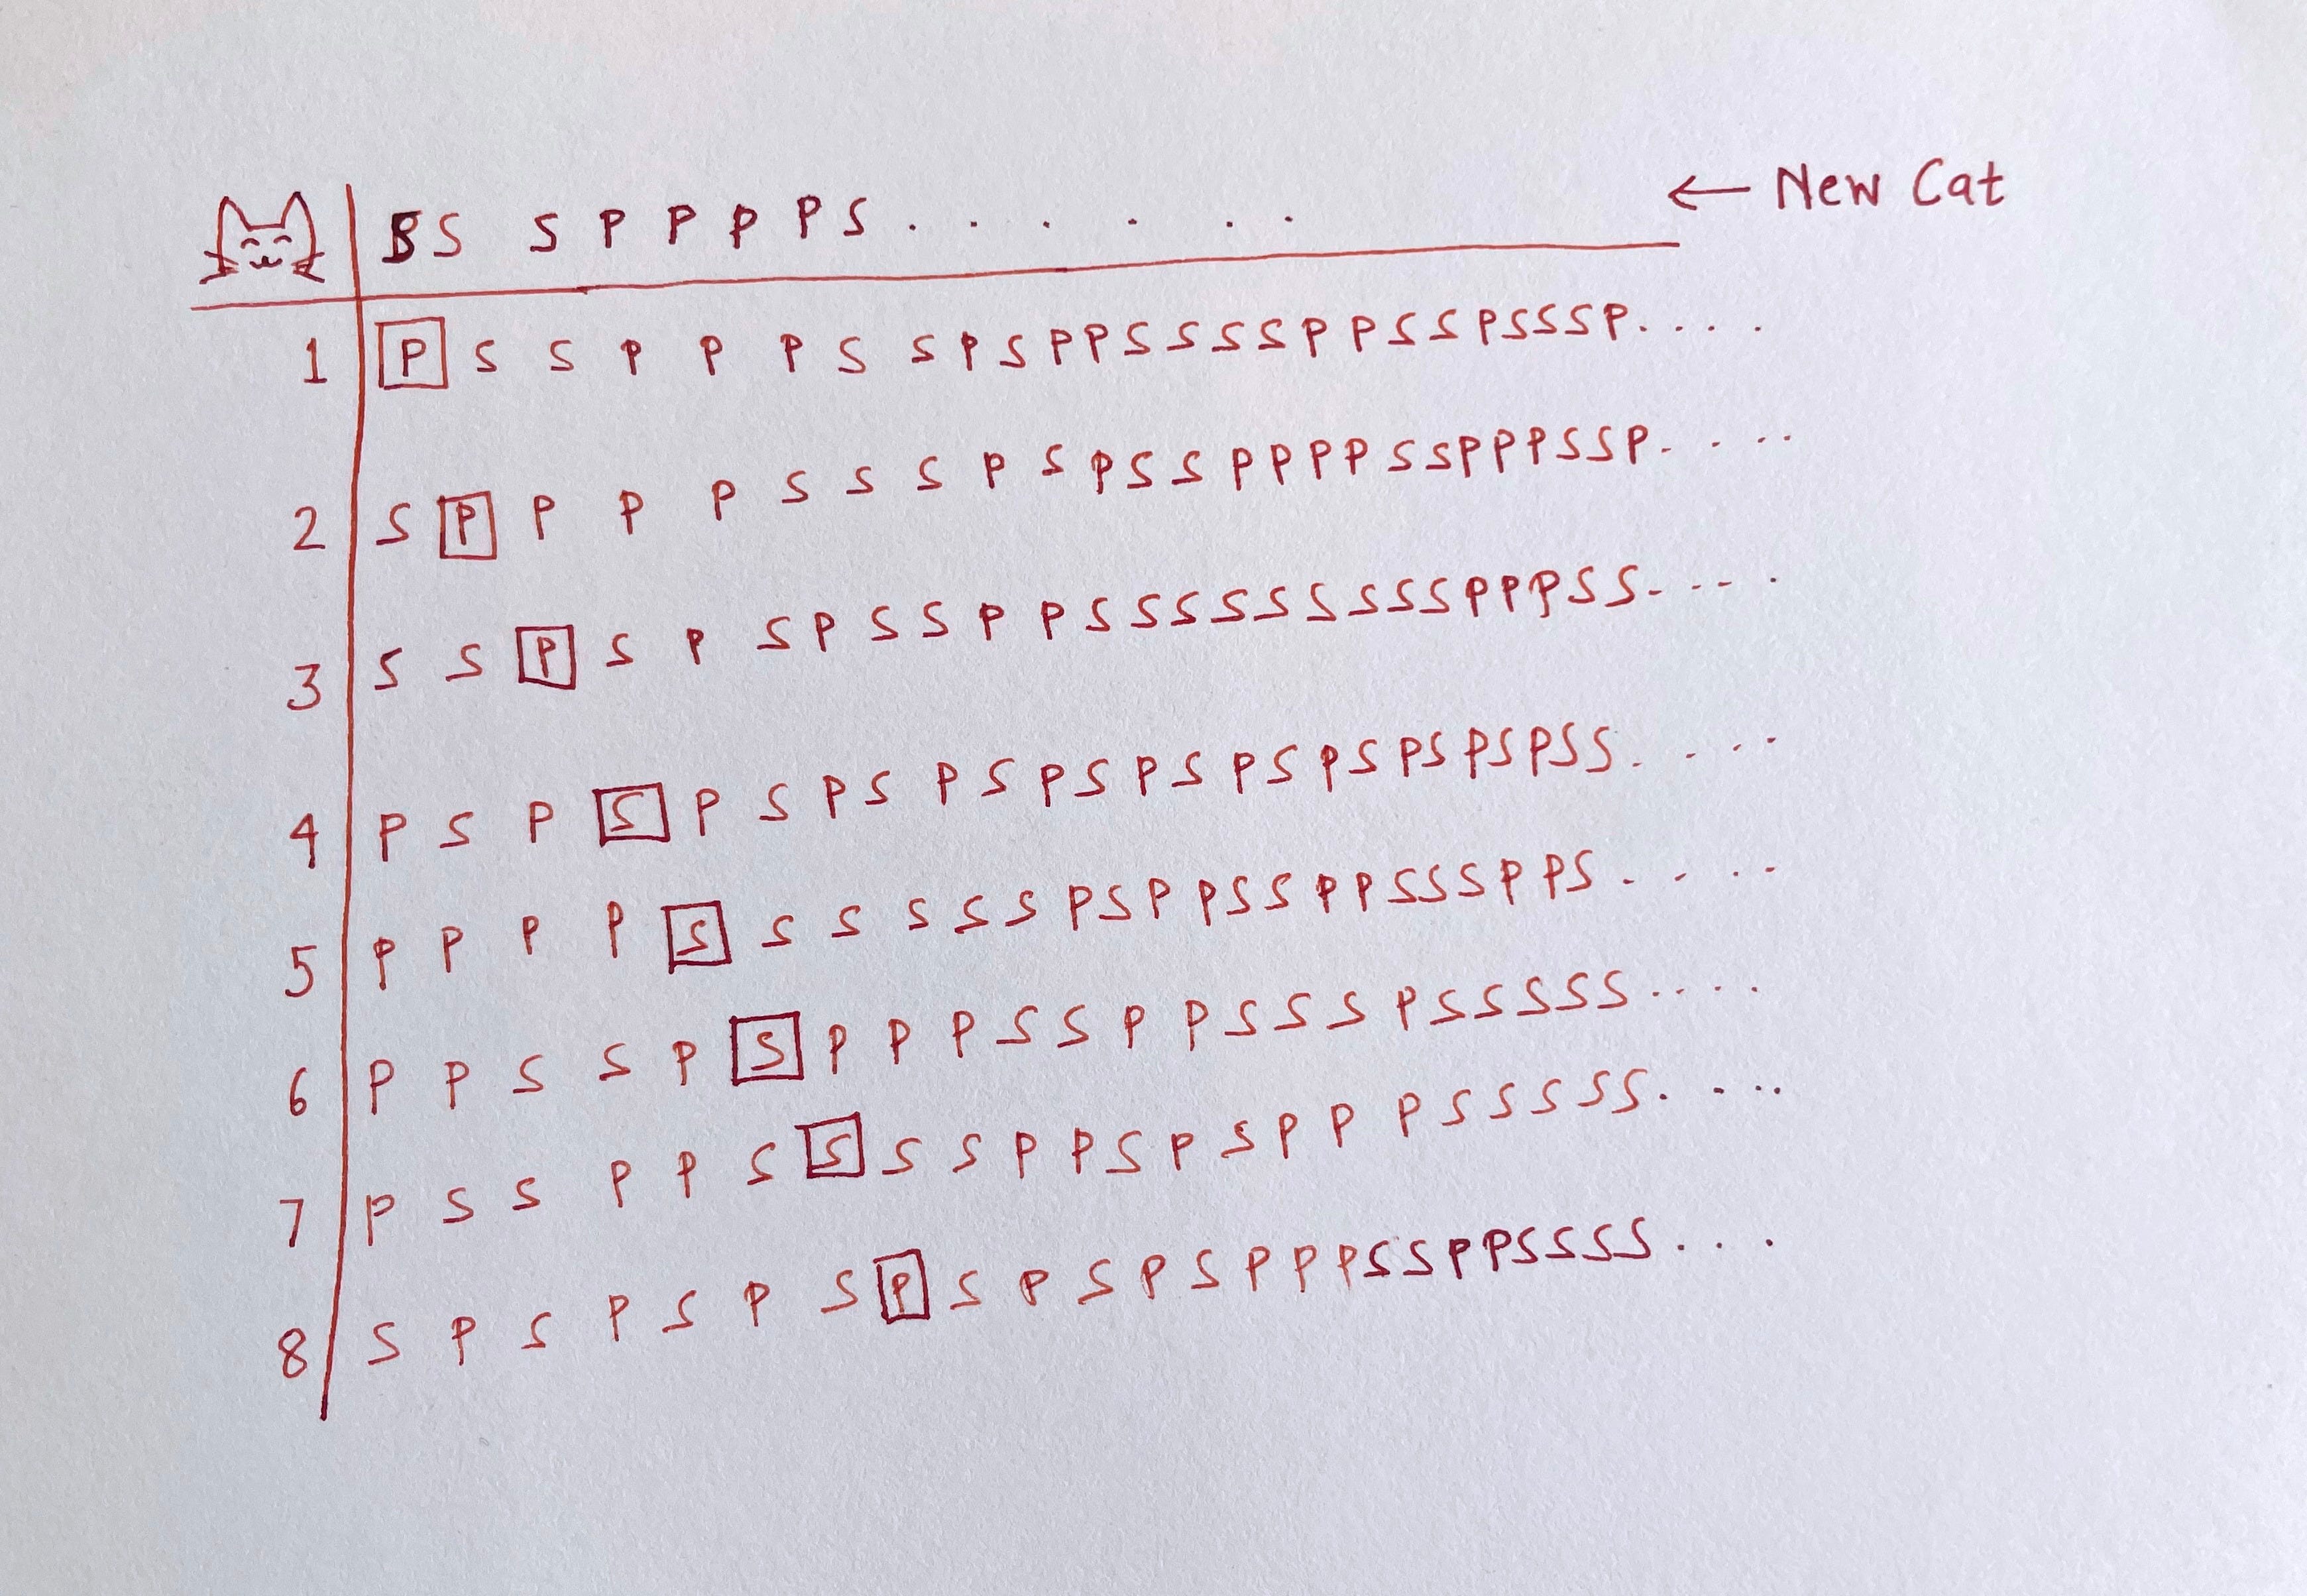 S S S P P P P S . . . . . . ← New Cat
1 P S S P P P S S P S P P S S S S P P S S P S S S P . . . .
2 S P P P P S S S P S P S S P P P P S S P P P S S P . . . .
3 S S P S P S P S S P P S S S S S S S S S P P P S S . . . .
4 P S P S P S P S P S P S P S P S P S P S P S P S S . . . .
5 P P P P S S S S S S P S P P S S P P S S S P P S . . . .
6 P P S S P S P P P S S P P S S S P S S S S S . . . .
7 P S S P P S S S S P P S P S P P P S S S S S . . . .
8 S P S P S P S P S P S P S P P P S S P P S S S S . . .